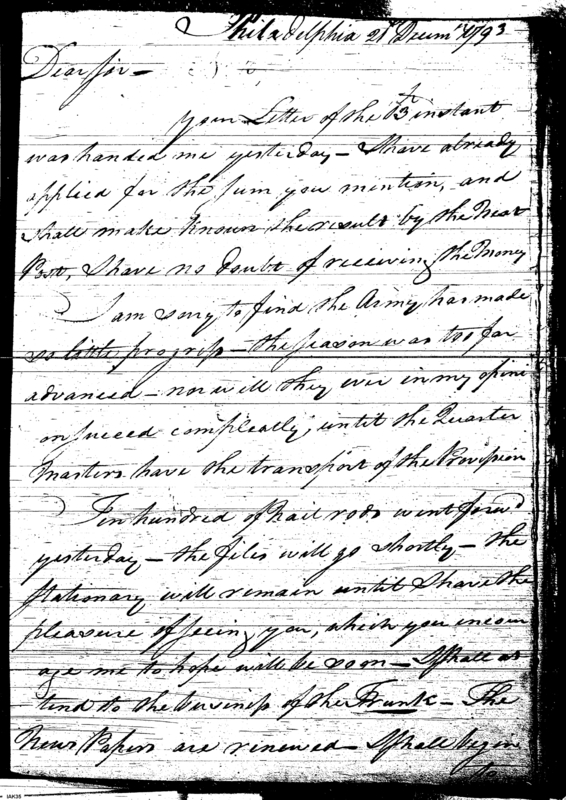 Philadelphia 21st Decmr 1793
Dear Sir —
your Letter of the 13th instant
was handed me yesterday — I have already
applied for the sum you mention, and
shall make known the result by the Next
Post, I have no doubt of receiving the Money
I am sorry to find the Army has made
so little progress — the season was too far
advanced — nor will they ever in my opini
on succeed compleatly, until the Quarter
Masters have the transport of the Provision
Ten hundred of Nail rods went forwd
yesterday — the files will go shortly — the
stationary will remain until I have the
pleasure of seeing you, which you incour
age me to hope will be soon — I shall at
tend to the business of the Trunk — The
News Papers are renewed — I shall begin
to
IAK35